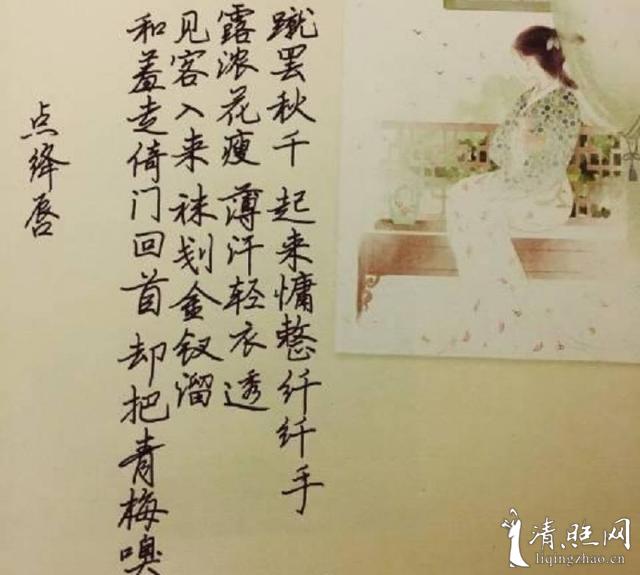 蹴罢秋千 起来慵整纤纤手
露浓花瘦 薄汗轻衣透
见客入来 袜刬金钗溜
和羞走 倚门回首 却把青梅嗅
点绛唇
清照网
liqingzhao.cn